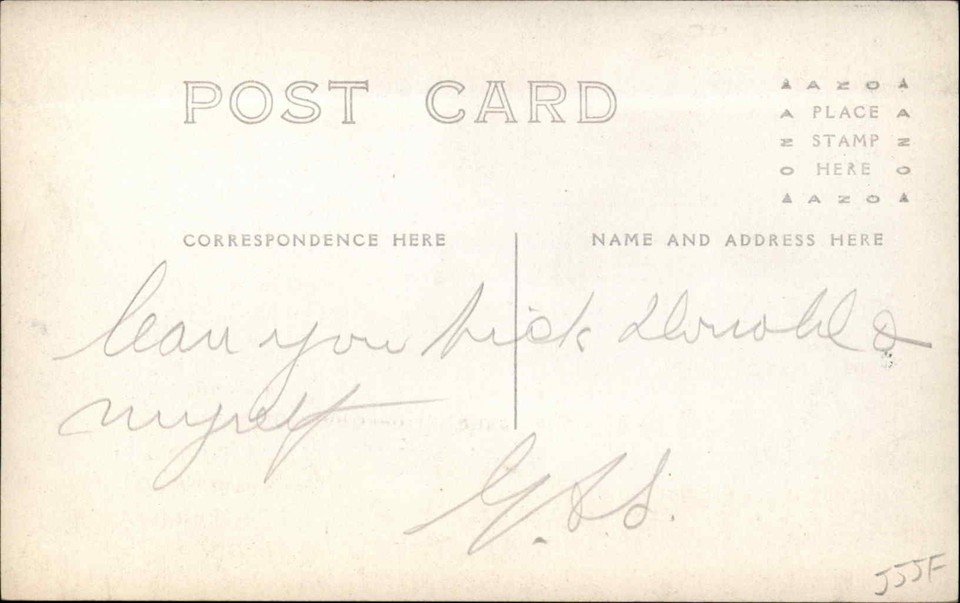 POST CARD
▲ A Z O ▲
A PLACE A
Z STAMP Z
O HERE O
▲ A Z O ▲
CORRESPONDENCE HERE
NAME AND ADDRESS HERE
Can you pick &
myself
G.S.S.
JJJF